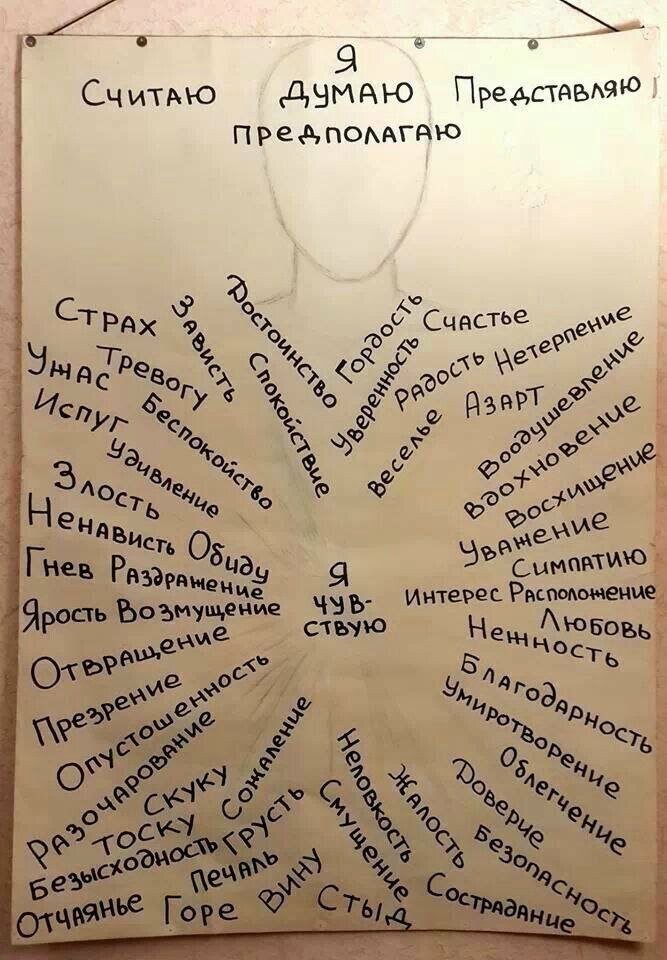 Я
Считаю думаю Представляю
предполагаю
Страх
Зависть
Достоинство
Гордость
Счастье
Ужас
Тревогу
Спокойствие
Уверенность
Радость
Нетерпение
Испуг
Беспокойство
Веселье
Азарт
Воодушевление
Удивление
Вдохновение
Злость
Восхищение
Ненависть Обиду
Уважение
Гнев Раздражение
Я
Симпатию
Ярость Возмущение
чув-
Интерес Расположение
ствую
Любовь
Отвращение
Нежность
Презрение
Благодарность
Опустошенность
Умиротворение
Разочарование
Облегчение
Скуку
Сожаление
Неловкость
Жалость
Доверие
тоску
Грусть
Смущение
Безопасность
Безысходность
Печаль
Вину
Сострадание
Отчаянье
Горе
Стыд